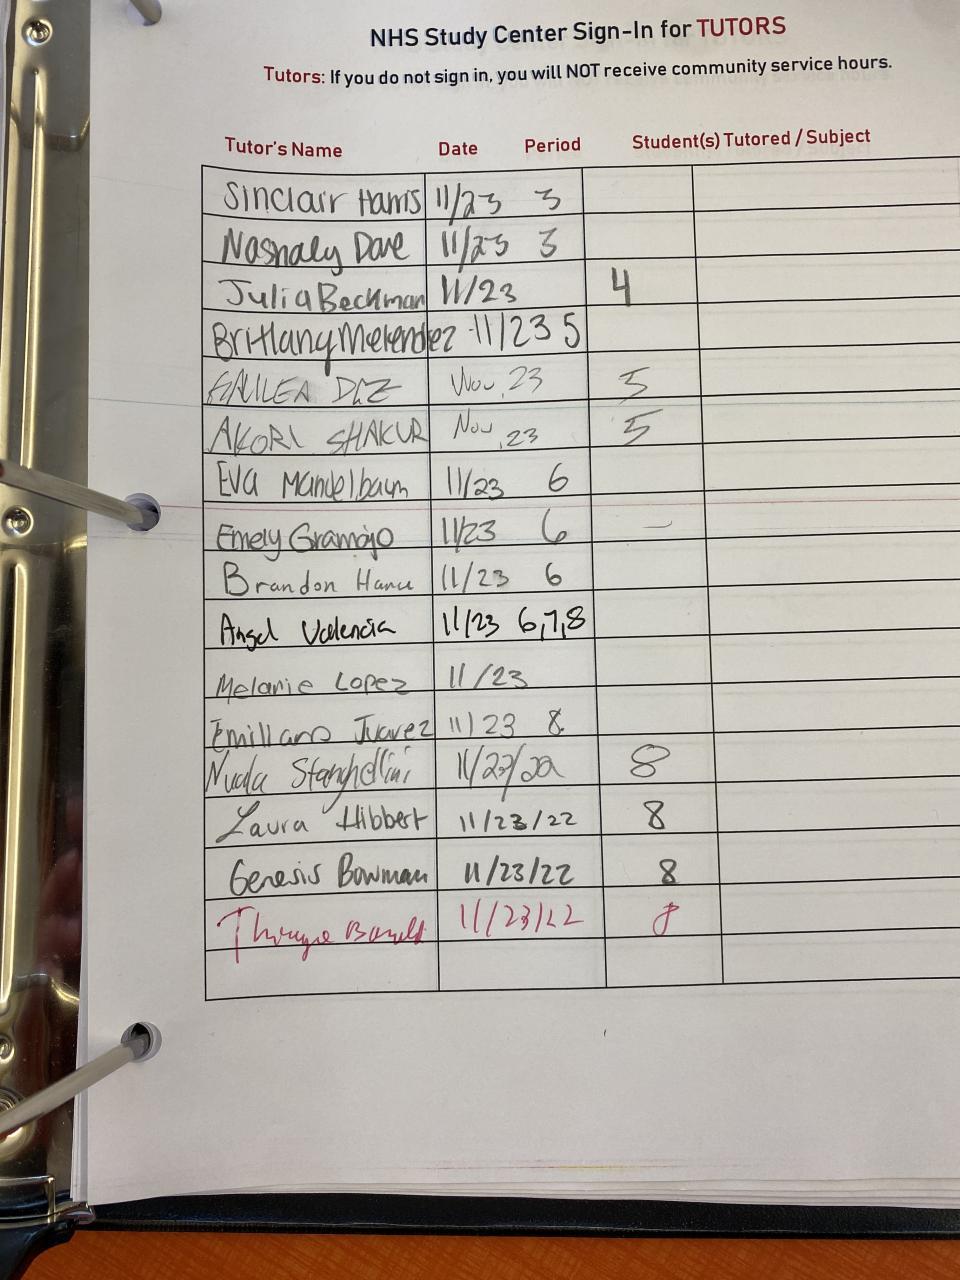 NHS Study Center Sign-In for TUTORS
Tutors: If you do not sign in, you will NOT receive community service hours.
Tutor's Name Date Period Student(s) Tutored / Subject
Sinclair Harris 11/23 3
Nashaly Dave 11/23 3
Julia Beckman 11/23 4
Brittany Melendez 11/23 5
Nov. 23 5
AKORI SHAKUR Nov. 23 5
Eva Mandelbaum 11/23 6
Emely Gramajo 11/23 6
Brandon 11/23 6
Angel Valencia 11/23 6,7,8
Melanie Lopez 11/23
Emiliano Juarez 11/23 8
Nuala Stanghellini 11/23/22 8
Laura Hibbert 11/23/22 8
Genesis Bowman 11/23/22 8
11/23/22 8